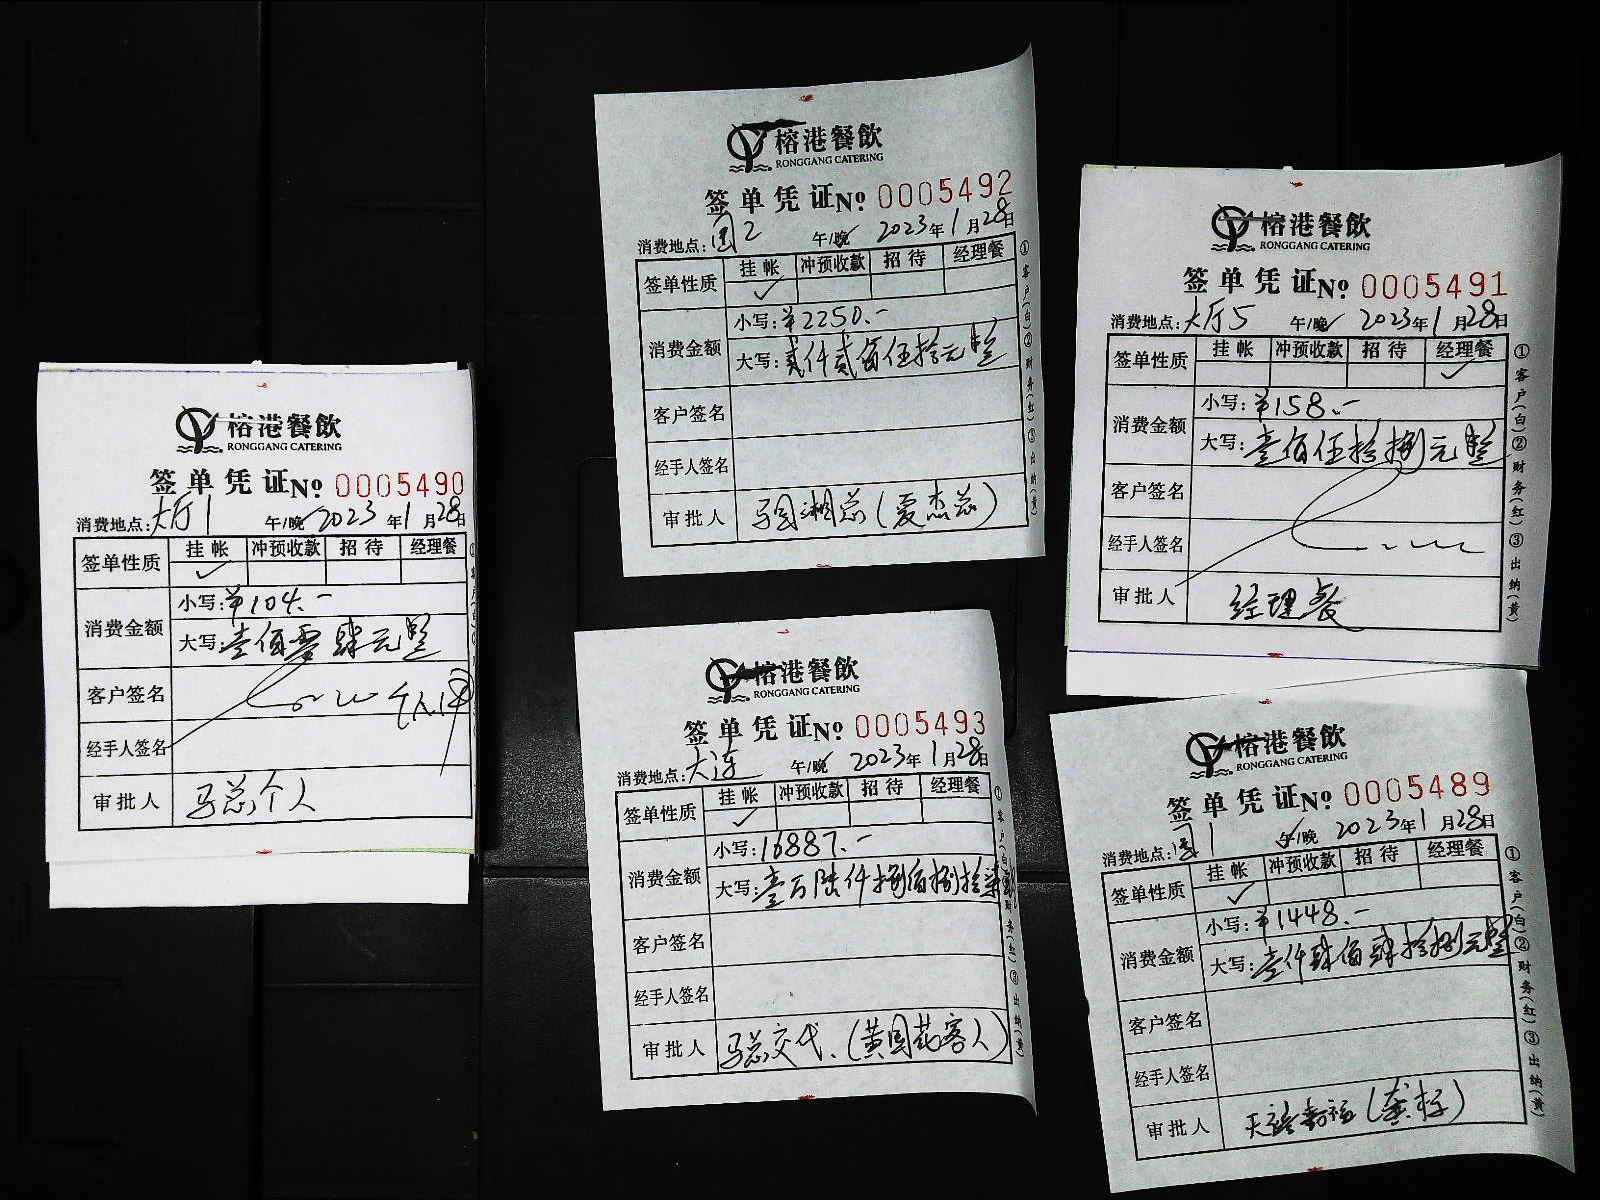 榕港餐飲
RONGGANG CATERING
签单凭证No 0005490
消费地点:大厅1 午/晚 2023年1月28日
签单性质 挂帐 冲预收款 招待 经理餐
✓
消费金额 小写:¥104.-
大写:壹佰零肆元整
客户签名
经手人签名
审批人 马总个人
榕港餐飲
RONGGANG CATERING
签单凭证No 0005492
消费地点:国2 午/晚 2023年1月28日
签单性质 挂帐 冲预收款 招待 经理餐
✓
消费金额 小写:¥2250.-
大写:贰仟贰佰伍拾元整
客户签名
经手人签名
审批人 马国湘总(夏杰总)
①客户(白)②财务(红)③出纳(黄)
榕港餐飲
RONGGANG CATERING
签单凭证No 0005493
消费地点:大连 午/晚 2023年1月28日
签单性质 挂帐 冲预收款 招待 经理餐
✓
消费金额 小写:16887.-
大写:壹万陆仟捌佰捌拾柒
客户签名
经手人签名
审批人 马总交代.(黄国花客人)
①客户(白)财务(红)③出纳(黄)
榕港餐飲
RONGGANG CATERING
签单凭证No 0005491
消费地点:大厅5 午/晚 2023年1月28日
签单性质 挂帐 冲预收款 招待 经理餐
✓
消费金额 小写:¥158.-
大写:壹佰伍拾捌元整
客户签名
经手人签名
审批人 经理餐
①客户(白)②财务(红)③出纳(黄)
榕港餐飲
RONGGANG CATERING
签单凭证No 0005489
消费地点:国1 午/晚 2023年1月28日
签单性质 挂帐 冲预收款 招待 经理餐
✓
消费金额 小写:¥1448.-
大写:壹仟肆佰肆拾捌元整
客户签名
经手人签名
审批人
①客户(白)②财务(红)③出纳(黄)